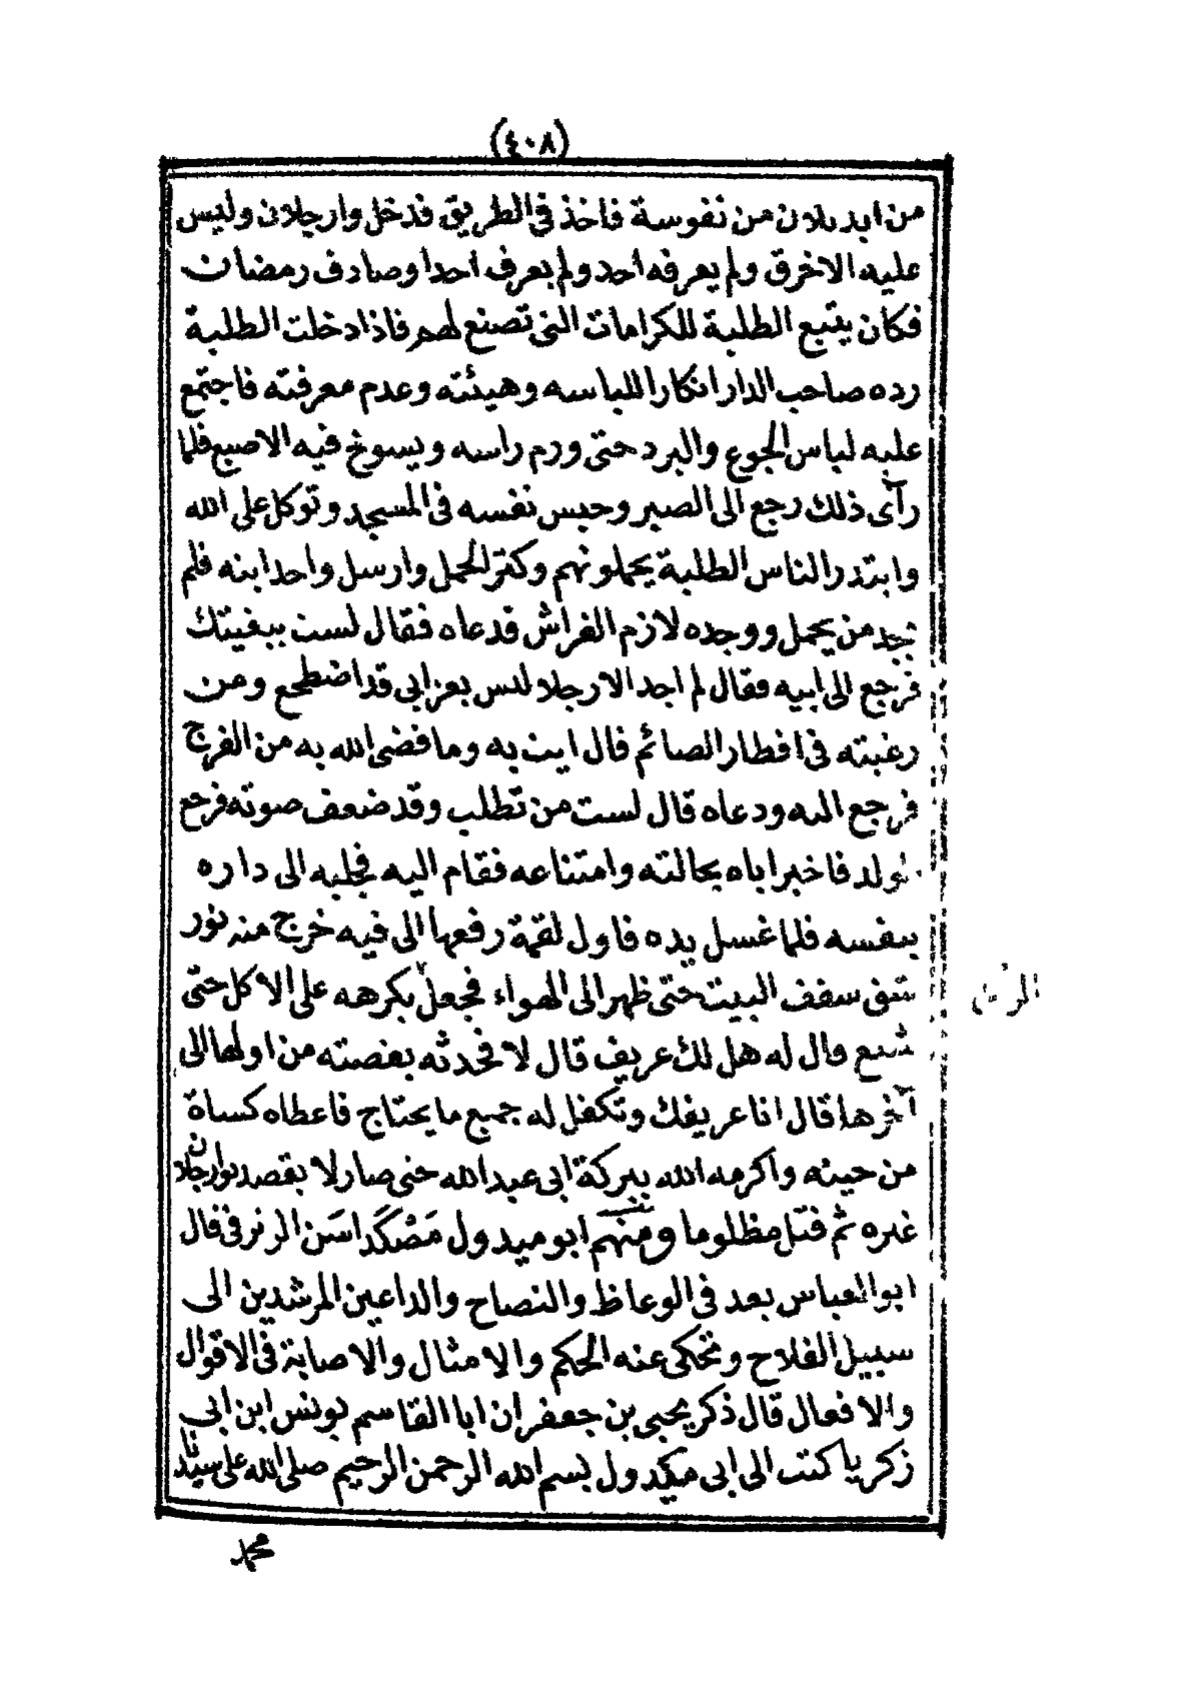 (٤٠٨)
من ايدبلان من نفوسة فاخذ في الطريق فدخل وارجلان وليس
عليه الا خرق ولم يعرفه احد ولم يعرف احدا وصادف رمضان
فكان يتبع الطلبة للكرامات التى تصنع لهم فاذا دخلت الطلبة
رده صاحب الدار انكارا للباسه وهيئته وعدم معرفته فاجتمع
عليه لباس الجوع والبرد حتى ورم راسه ويسوخ فيه الاصبع فلما
رآى ذلك رجع الى الصبر وحبس نفسه فى المسجد وتوكل على الله
وابتدر الناس الطلبة يحملونهم وكثر الحمل وارسل واحد ابنه فلم
يجد من يحمل ووجده لازم الفراش فدعاه فقال لست ببغيتك
فرجع الى ابيه فقال لم اجد الا رجلا ليس بعزابى قد اضطجع ومن
رغبته فى افطار الصائم قال ايت به وما قضى الله به من الفرج
فرجع اليه ودعاه قال لست من تطلب وقد ضعف صوته فرجع
الولد فاخبر اباه بحالته وامتناعه فقام اليه فجلبه الى داره
بنفسه فلما غسل يده فاول لقمة رفعها الى فيه خرج منه نور
شق سقف البيت حتى ظهر الى الهواء فجعل يكرهه على الاكل حتى
شبع وقال له هل لك عريف قال لا فحدثه بقصته من اولها الى
آخرها قال انا عريفك وتكفل له جميع ما يحتاج فاعطاه كساة
من حينه واكرمه الله ببركة ابى عبد الله حتى صار لا يقصد بوارجلان
غيره ثم قتل مظلوما ومنهم ابو ميدول مَصْكَداسَن الزنزفى قال
ابو العباس بعد فى الوعاظ والنصاح والداعين المرشدين الى
سبيل الفلاح وتحكى عنه الحكم والامثال والاصابة فى الاقوال
والافعال قال ذكر يحيى بن جعفر ان ابا القاسم يونس ابن ابى
زكرياء كتب الى ابى ميكدول بسم الله الرحمن الرحيم صلى الله على سيدنا
محمد